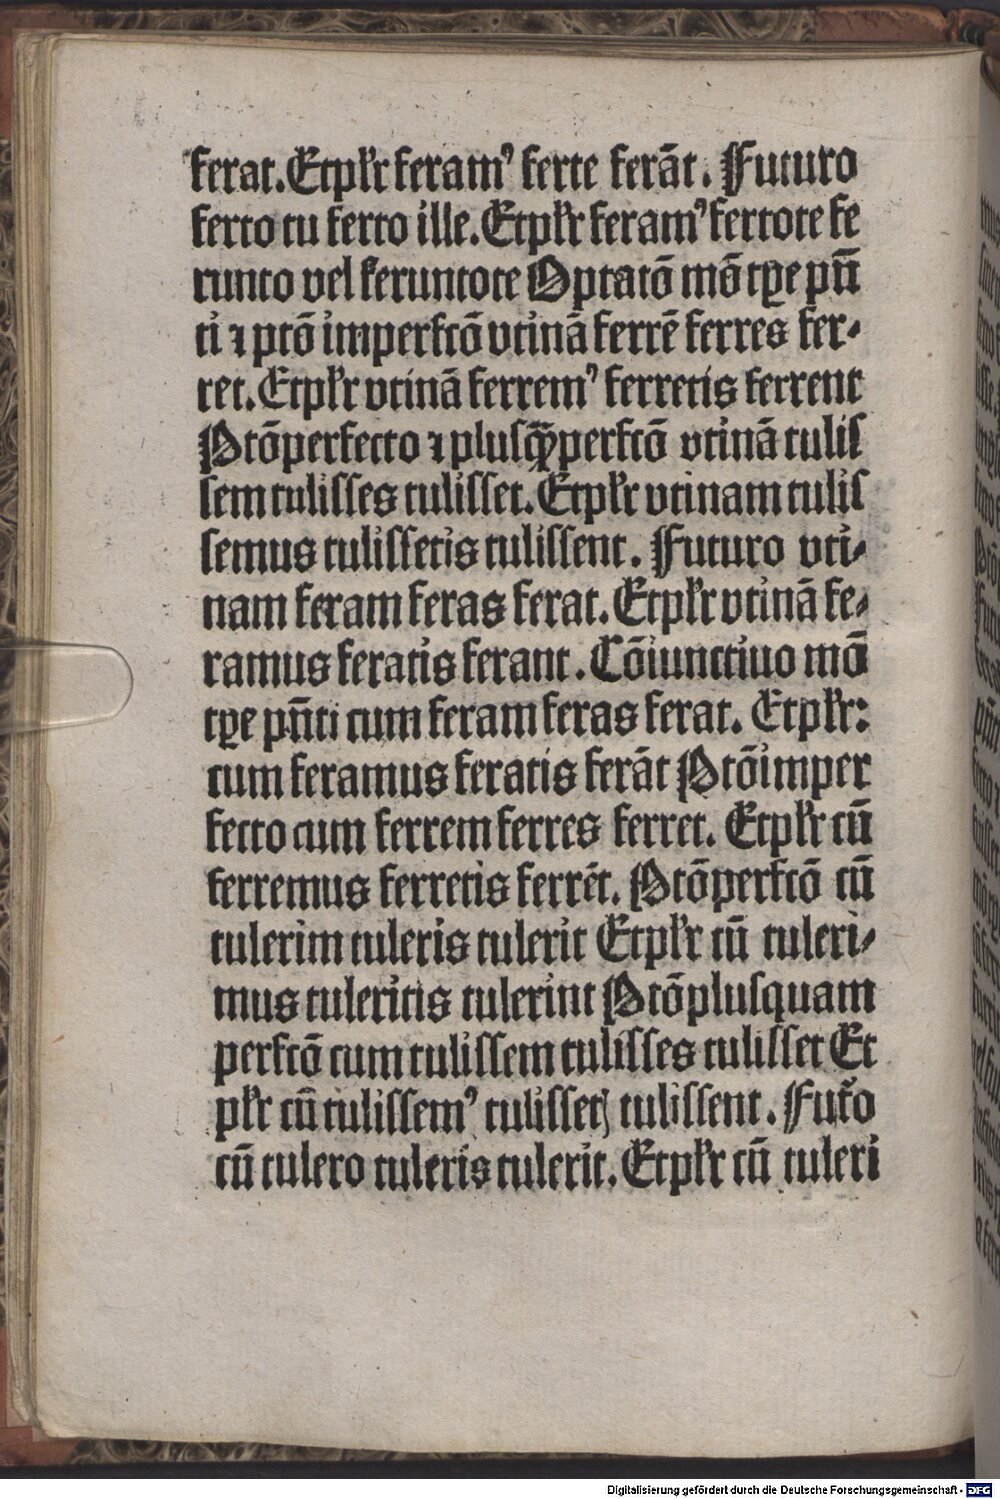 ferat. Etplr̃ feramꝰ ferte ferāt. Futuro
ferto tu ferto ille. Etplr̃ feramꝰ fertote fe
runto vel feruntote Optatō mō tꝑe pn̄
ti ⁊ ptō imperfctō vtinā ferrē ferres fer⸗
ret. Etplr̃ vtinā ferremꝰ ferretis ferrent
Ptōperfecto ⁊ plusꝙ̄perfctō vtinā tulis
sem tulisses tulisset. Etplr̃ vtinam tulis
semus tulissetis tulissent. Futuro vti⸗
nam feram feras ferat. Etplr̃ vtinā fe⸗
ramus feratis ferant. Cōiunctiuo mō
tꝑe pn̄ti cum feram feras ferat. Etplr̃:
cum feramus feratis ferāt Ptōimper
fecto cum ferrem ferres ferret. Etplr̃ cū
ferremus ferretis ferrēt. Ptōperfctō cū
tulerim tuleris tulerit Etplr̃ cū tuleri⸗
mus tuleritis tulerint Ptōplusquam
perfctō cum tulissem tulisses tulisset Et
plr̃ cū tulissemꝰ tulissetꝭ tulissent. Fut̃o
cū tulero tuleris tulerit. Etplr̃ cū tuleri
Digitalisierung gefördert durch die Deutsche Forschungsgemeinschaft - DFG